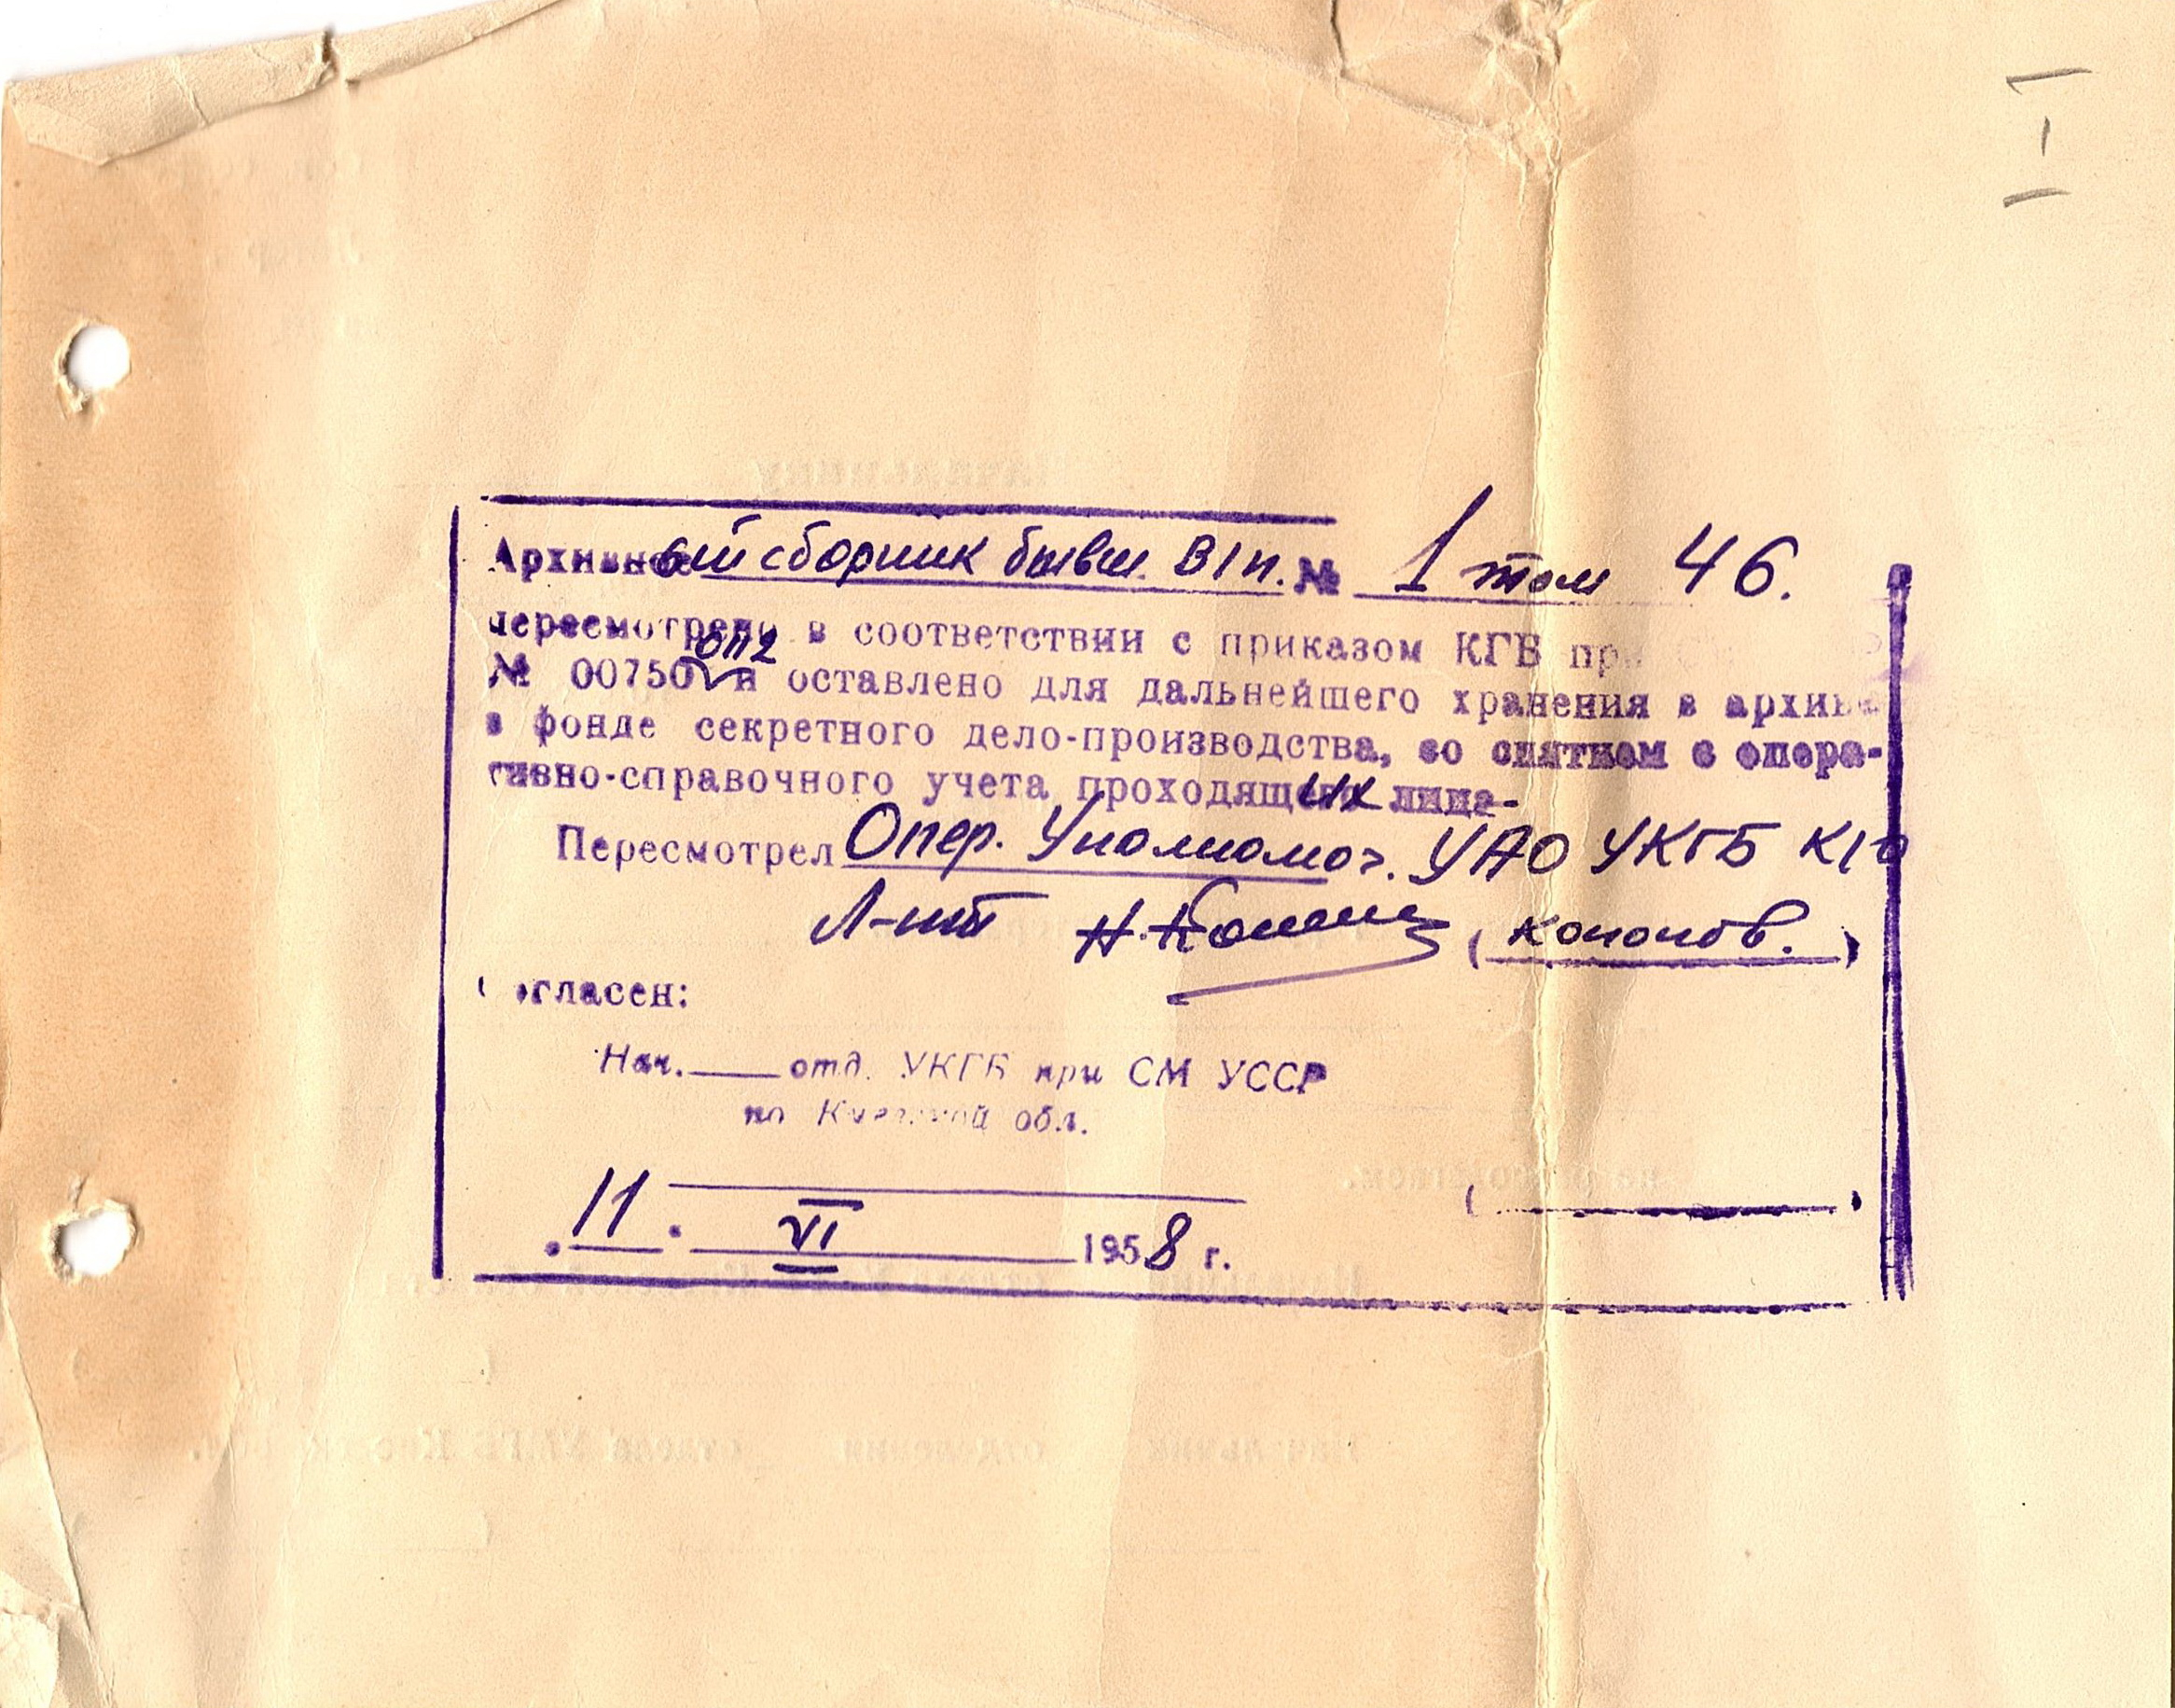 Архивный сборник бывш. В/п. № 1 том 46.
пересмотрено в соответствии с приказом КГБ при
опг
№ 00750 и оставлено для дальнейшего хранения в архиве
в фонде секретного дело-производства, со снятием с опера-
тивно-справочного учета проходящих лица-
Пересмотрел Опер. Уполномоч. УАО УКГБ К/о
Л-нт (Кононов.)
Согласен:
Нач. ____ отд. УКГБ при СМ УССР
по Киевской обл.
"11" VI 1958 г. ( )